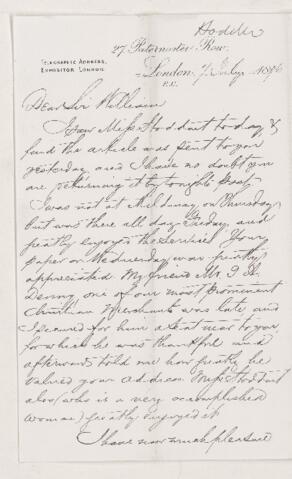 Hodder
27, Paternoster Row,
TELEGRAPHIC ADDRESS,
EXPOSITOR LONDON.
London, 7 July 1896
E.C.
Dear Sir William
I saw Miss Stoddart today &
find the article was sent to you
yesterday and I have no doubt you
are returning it by tonights post
I was not at Mildmay on Thursday
but was there all day Friday and
greatly enjoyed the services Your
paper on Wednesday was greatly
appreciated My friend Mr
Denny one of our most prominent
Christian Merchants was late and
I secured for him a seat near to you
for which he was thankful and
afterwards told me how greatly he
valued your address Miss Stoddart
also (who is a very accomplished
woman) greatly enjoyed it
I have now much pleasure